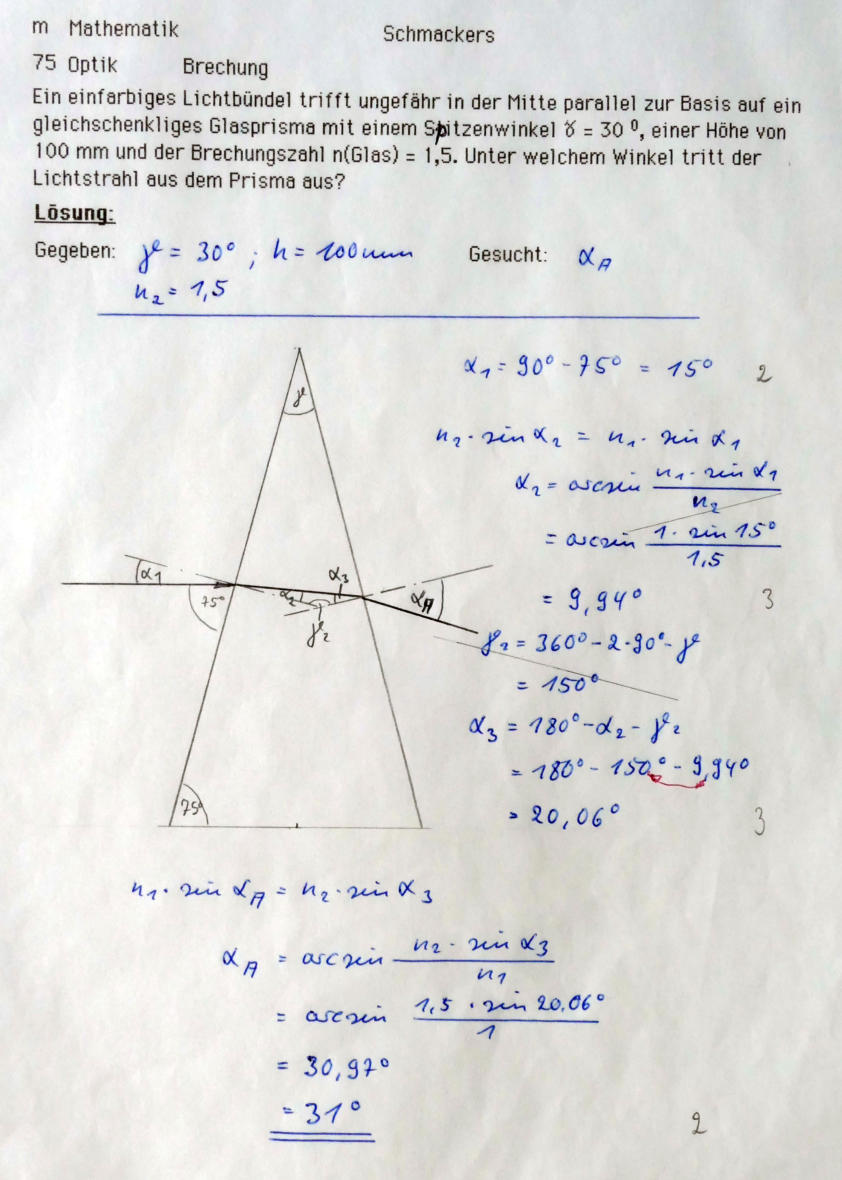 m Mathematik Schmackers
75 Optik Brechung
Ein einfarbiges Lichtbündel trifft ungefähr in der Mitte parallel zur Basis auf ein
gleichschenkliges Glasprisma mit einem Spitzenwinkel ɣ = 30 °, einer Höhe von
100 mm und der Brechungszahl n(Glas) = 1,5. Unter welchem Winkel tritt der
Lichtstrahl aus dem Prisma aus?
Lösung:
Gegeben: γ = 30° ; h = 100 mm Gesucht: α_A
n₂ = 1,5
γ
α₁ = 90° - 75° = 15° 2
n₂ · sin α₂ = n₁ · sin α₁
α₂ = arcsin (n₁ · sin α₁)/n₂
= arcsin (1 · sin 15°)/1,5
= 9,94° 3
α₁ 75° α₂ α₃ γ₂ α_A
γ₂ = 360° - 2 · 90° - γ
= 150°
α₃ = 180° - α₂ - γ₂
= 180° - 150° - 9,94°
= 20,06° 3
75°
n₁ · sin α_A = n₂ · sin α₃
α_A = arcsin (n₂ · sin α₃)/n₁
= arcsin (1,5 · sin 20,06°)/1
= 30,97°
= 31° 2